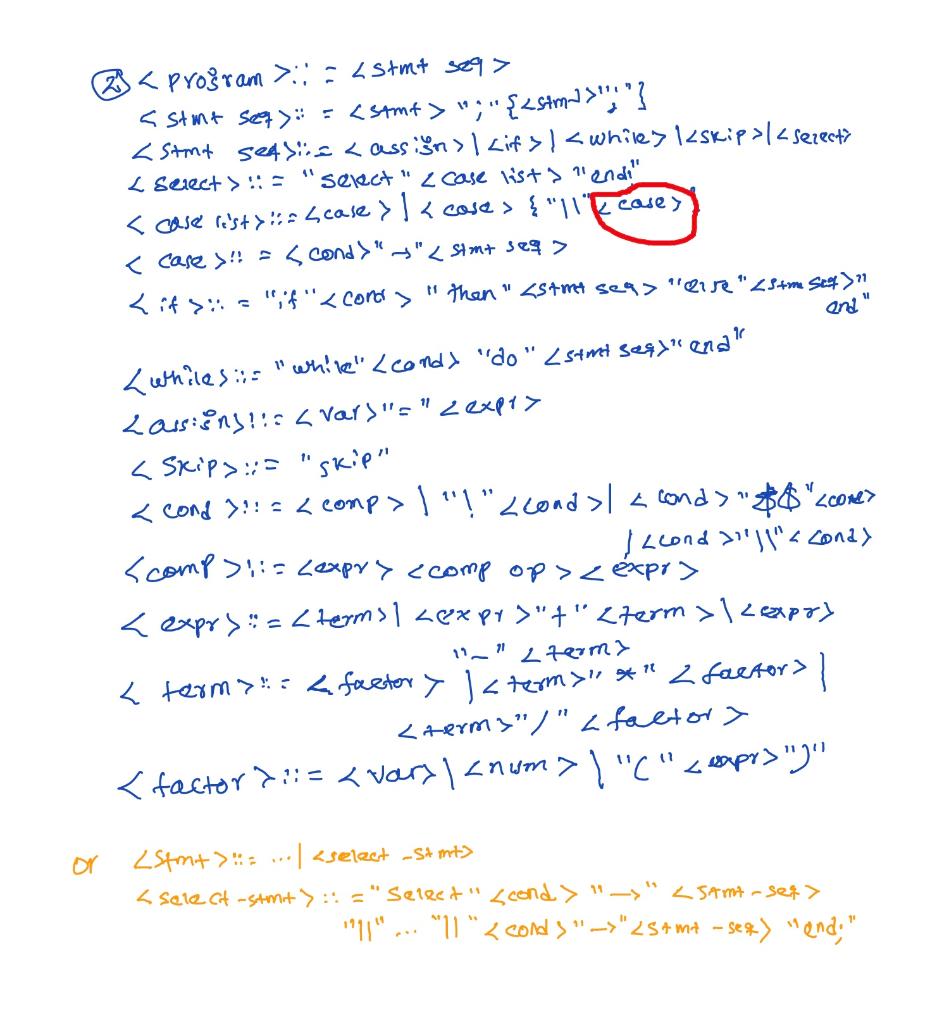 ② < program >::= <stmt seq>
< stmt seq>::= <stmt> ";" {<stmt>";"}
<stmt seq>::= <assign>|<if>|<while>|<skip>|<select>
< select >::= "select" < case list> "end;"
< case list>::= <case> | < case> { "||" < case> }
< case >::= < cond> "→" < stmt seq >
< if >::= "if" < cond > "then" <stmt seq> "else" <stm seq>"
end"
<while>::= "while" <cond> "do" <stmt seq>" end"
<assign>::= < var> "=" < expr>
< skip>::= "skip"
< cond >::= < comp > | "!" <cond>| < cond> "$$" <cond>
| <cond >"||" < cond>
<comp >::= <expr> <comp op> < expr>
< expr>::= <term>| <expr>"+" <term>|<expr>
"-" <term>
< term>::= < factor> | < term>" *" < factor> |
<term>"/" < factor >
< factor >::= < var>|<num> | "(" < expr>")"
or <Stmt>::= ...| <select -stmt>
< select -stmt> ::= "Select" <cond> "→" < stmt - seq>
"||" ... "||" < cond>"→"<stmt - seq> "end;"